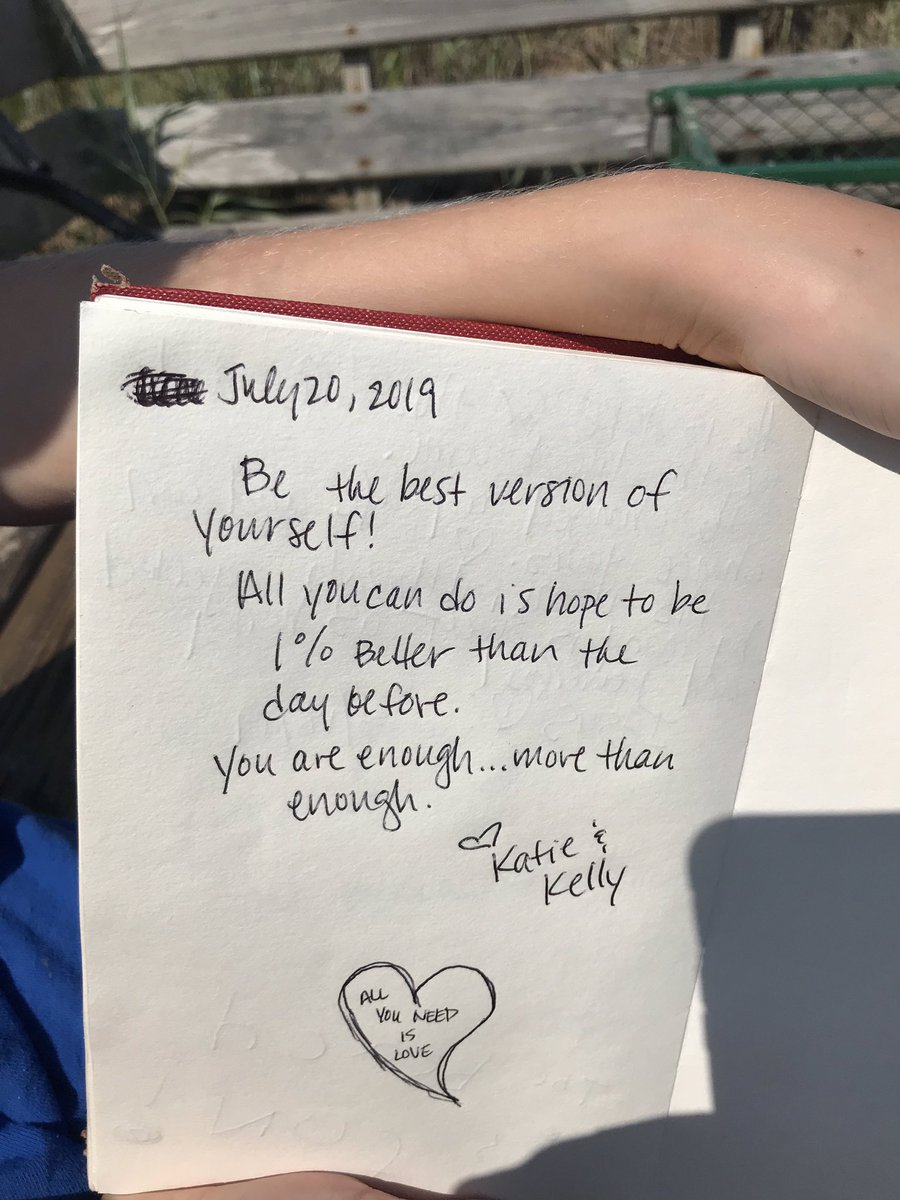 July 20, 2019
Be the best version of
Yourself!
All you can do is hope to be
1% Better than the
day before.
You are enough...more than
enough.
Katie &
Kelly
ALL
YOU NEED
IS
LOVE